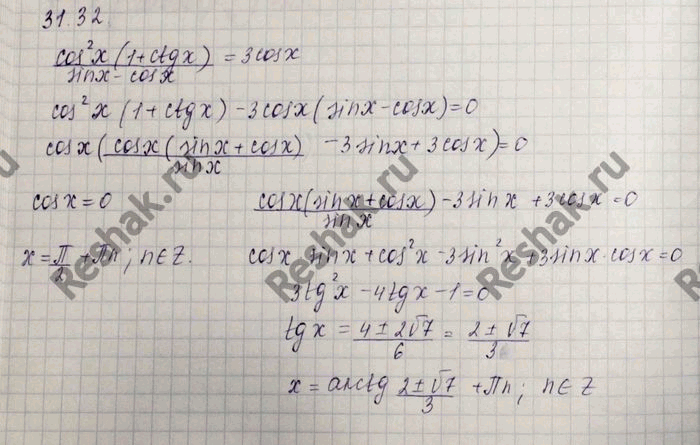 31.32.
cos²x(1+ctgx)/(sinx-cosx) = 3cosx
cos²x(1+ctgx)-3cosx(sinx-cosx)=0
cosx(cosx(sinx+cosx)/sinx -3sinx+3cosx)=0
cosx=0
cosx(sinx+cosx)/sinx -3sinx+3cosx=0
x=П/2+Пn; n∈Z.
cosx sinx+cos²x-3sin²x+3sinx·cosx=0
3tg²x-4tgx-1=0
tgx = (4±2√7)/6 = (2±√7)/3
x = arctg (2±√7)/3 +Пn; n∈Z
Reshak.ru
Reshak.ru
Reshak.ru
Reshak.ru
Reshak.ru